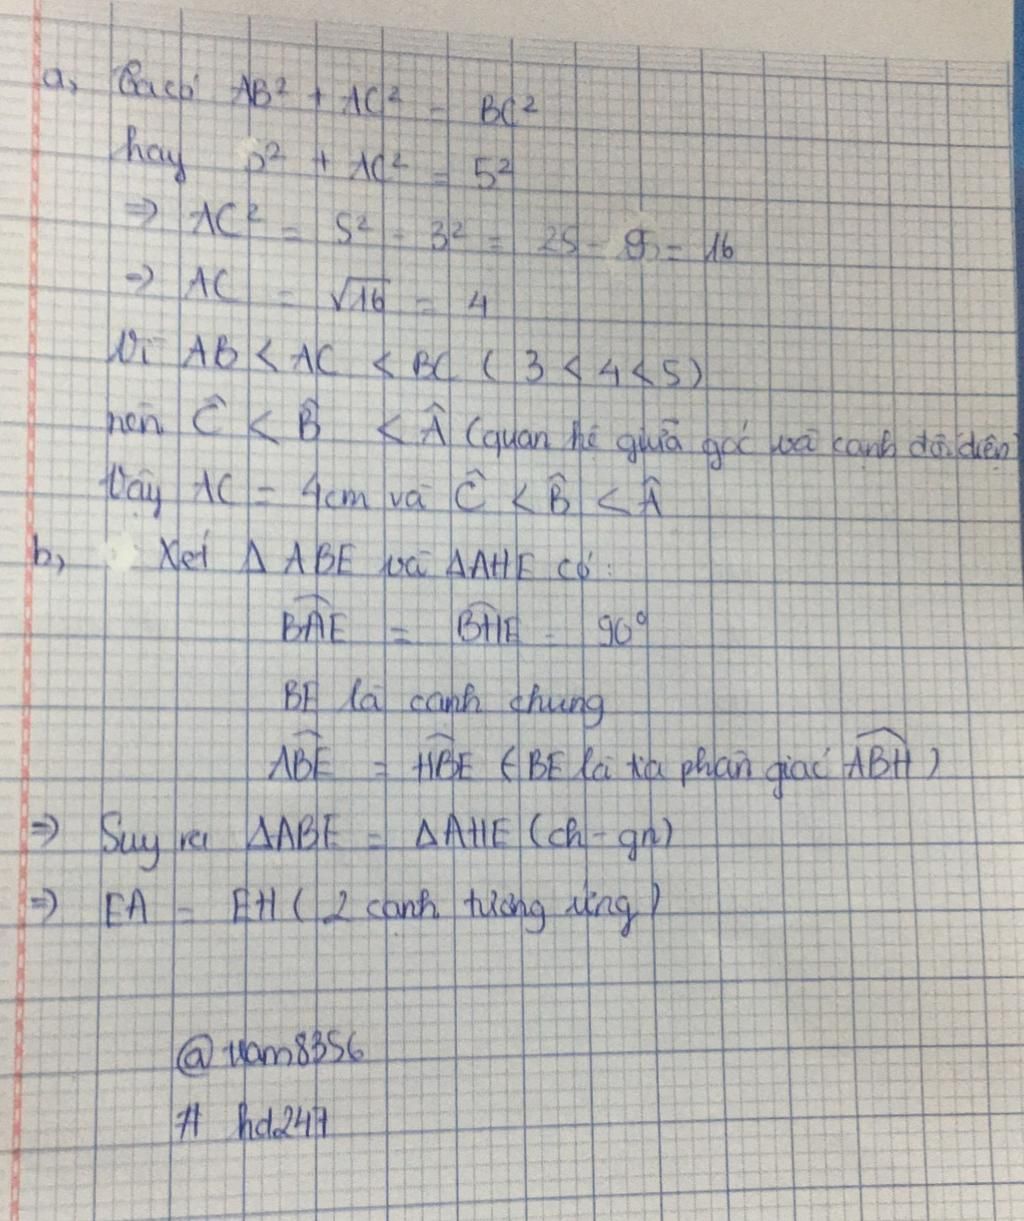 a, Ta có AB² + AC² = BC²
hay 3² + AC² = 5²
=> AC² = 5² - 3² = 25 - 9 = 16
=> AC = √16 = 4
Vì AB < AC < BC ( 3 < 4 < 5 )
nên Ĉ < B̂ < Â (quan hệ giữa góc và cạnh đối diện
Vậy AC = 4cm và Ĉ < B̂ < Â
b, Xét Δ ABE và ΔAHE có :
\widehat{BAE} = \widehat{BHE} = 90°
BE là cạnh chung
\widehat{ABE} = \widehat{HBE} (BE là tia phân giác \widehat{ABH} )
=> Suy ra ΔABE = ΔAHE (ch - gn)
=> EA = EH ( 2 cạnh tương ứng )
@nam8356
# hd247